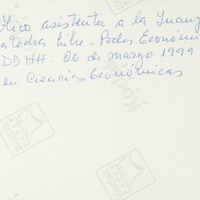 asistenta a la Inaug
Cátedra Libre - Poder Económi
DDHH. 06 de marzo 1999
en Ciencias Económicas